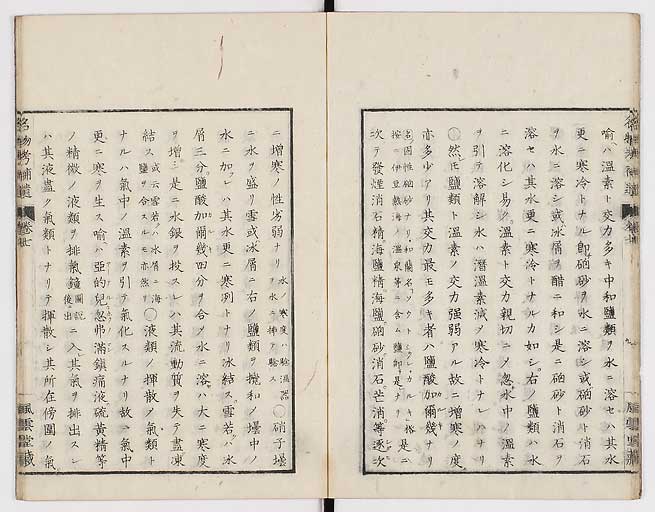 喩ハ溫素ト交力多キ中和鹽類ヲ水ニ溶セハ其水
更ニ寒冷トナル即硇砂ヲ水ニ溶シ或硇砂ト消石
ヲ水ニ溶シ或冰屑ヲ醋ニ和シ是ニ硇砂ト消石ヲ
溶セハ其水更ニ寒冷トナルカ如シ右ノ鹽類ハ水
ニ溶化シ易ク溫素ト交力親切ニノ忽水中ノ溫素
ヲ引テ溶解シ水ハ潛溫素減メ寒冷トナレハナリ
◯然モ鹽類ト溫素ノ交力强弱アル故ニ增寒ノ度
亦多少アリ其交力最モ多キ者ハ鹽酸加爾幾ナリ
是ニ
按ニ伊豆熱海ノ溫泉等ニ含ム鹽卽是ナリ
次テ發煙消石精海鹽精海鹽硇砂消石芒消等逐次
ニ增寒ノ性劣弱ナリ
水ノ寒度ハ驗溫器
ヲ水ニ揷テ驗ス
◯硝子壜
ニ水ヲ盛リ雪或冰屑ニ右ノ鹽類ヲ攪和ノ壜中ノ
水ニ加フレハ其水更ニ寒冽トナリ冰結ス雪若ハ冰
屑三分鹽酸加爾幾四分ヲ合メ水ニ溶ハ大ニ寒度
ヲ增ニ是ニ水銀ヲ投スレハ其流動質ヲ失テ盡凍
結ス
或云雪若ハ冰屑ニ海
鹽ヲ合スルモ亦然リ
◯液類ノ揮散メ氣類ト
ナルハ氣中ノ溫素ヲ引テ氣化スルナリ故ニ氣中
更ニ寒ヲ生ス喩ハ亞的兒忽弗滿鎭痛液硫黃精等
ノ精微ノ液類ヲ排氣鐘
圖說
後出
ニ入其氣ヲ排出スレ
ハ其液盡ク氣類トナリテ揮散シ其所在傍圍ノ氣
名物考補遺
卷七
風雲堂藏